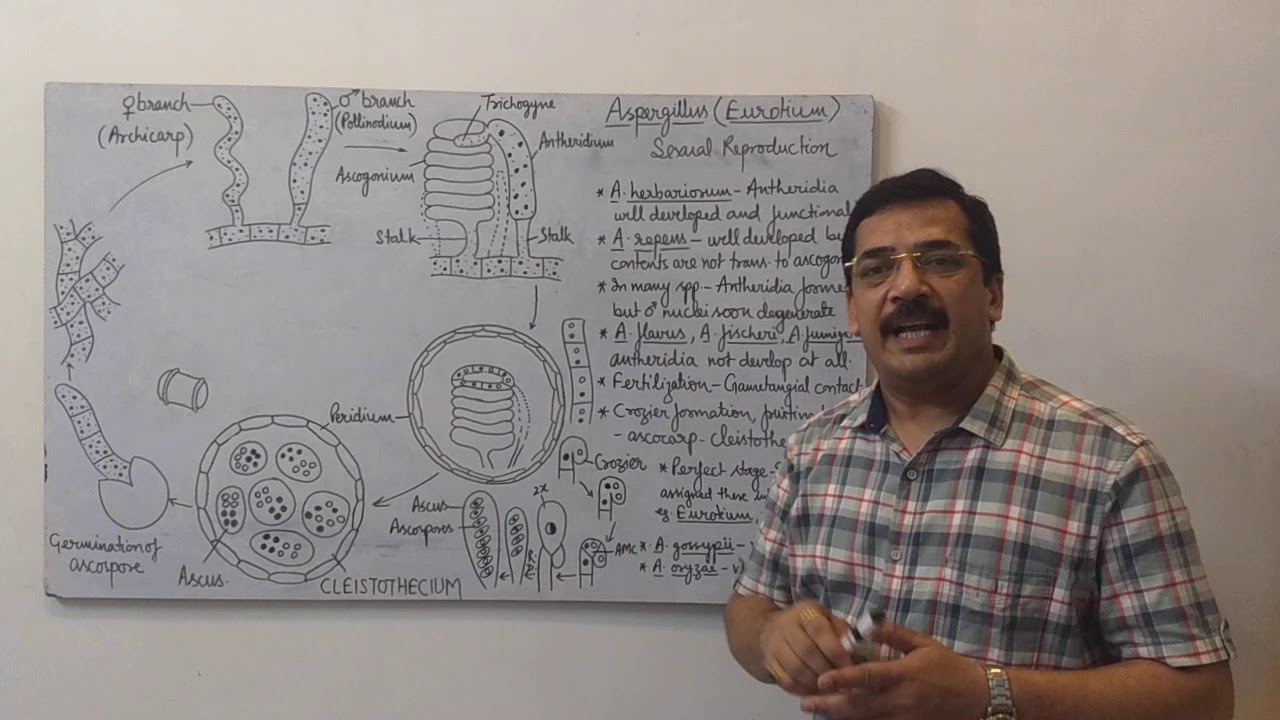 ♀ branch
(Archicarp)
♂ branch
(Pollinodium)
Trichogyne
Antheridium
Ascogonium
Stalk
Stalk
Peridium
Crozier
Ascus
Ascospores
2x
AMC
Germination of
ascospore
Ascus.
CLEISTOTHECIUM
Aspergillus (Eurotium)
Sexual Reproduction
* A. herbariorum - Antheridia
well developed and functional
* A. repens - well developed
contents are not trans. to
* In many spp. - Antheridia
but ♂ nuclei soon degenerate
* A. flavus, A. fischeri,
antheridia not develop at all.
* Fertilization - Gametangial contact
* Crozier formation,
- ascocarp -
* Perfect stage -
assigned these
eg. Eurotium,
* A. gossypii -
* A. oryzae -